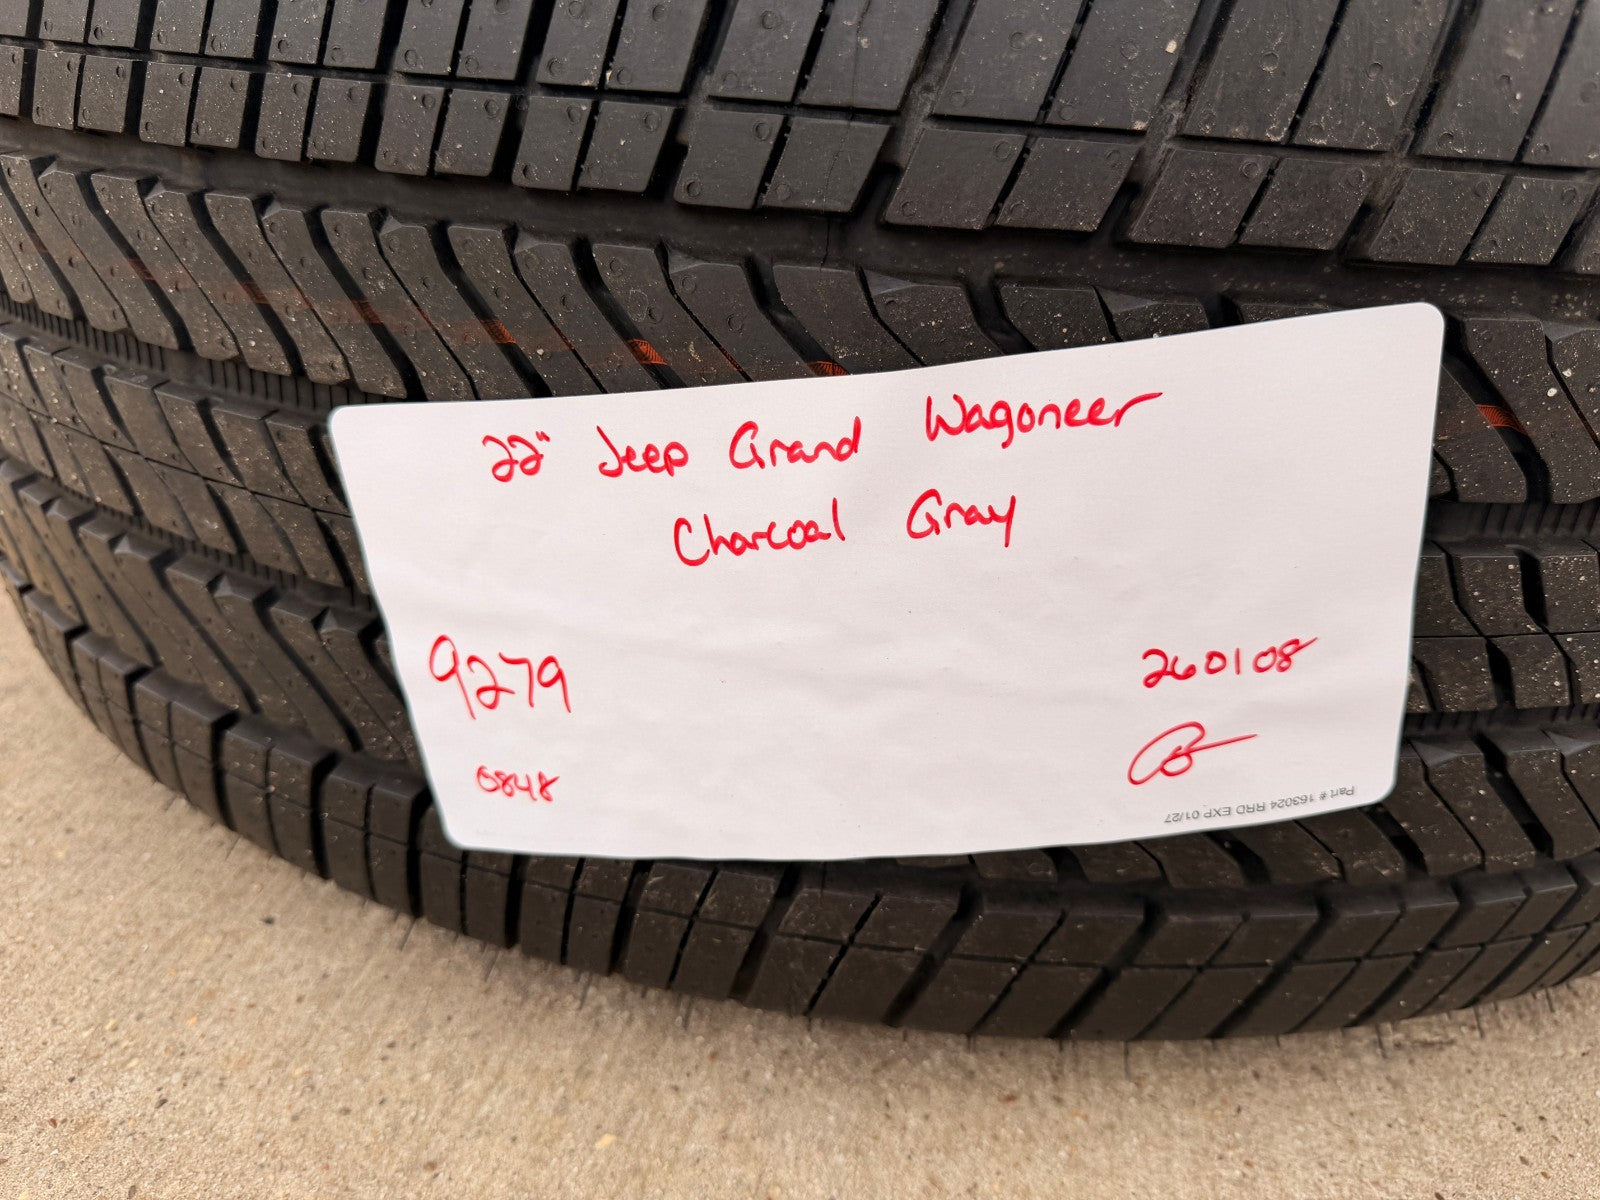 22" Jeep Grand Wagoneer
Charcoal Gray
9279
260108
0848
Part # 163024 RRD EXP 01/27